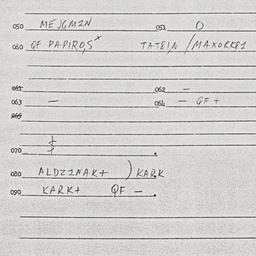 050 MEJGM2N 051 O
060 QF PAPIROS× TAT8IN / MAXORK81
061 062 –
063 – 064 – QF +
065
070 $
080 ALDZINAK+ ) KARK
090 KARK+ QF –